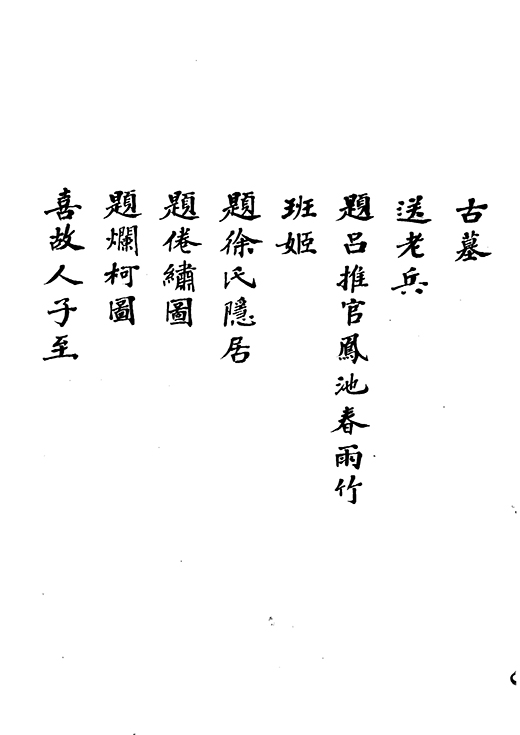 古墓
送老兵
題呂推官鳳池春雨竹
班姬
題徐氏隱居
題倦繡圖
題爛柯圖
喜故人子至